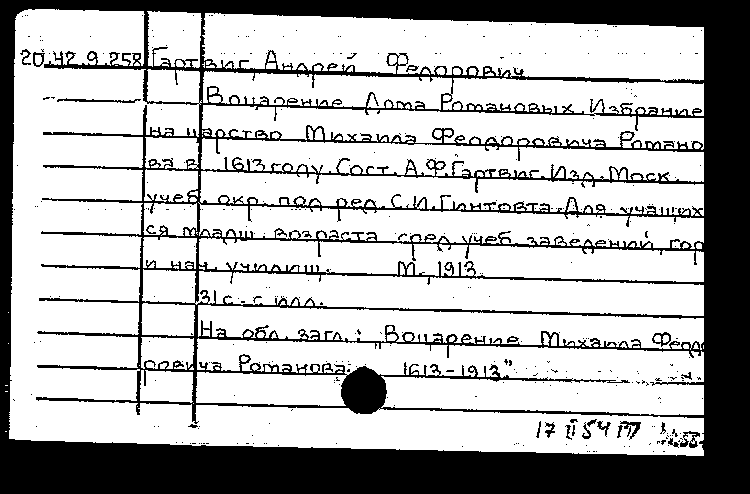 20.42.9.258 Гартвиг, Андрей Федорович
Воцарение Дома Романовых. Избрание
на царство Михаила Феодоровича Романо
ва в 1613 году. Сост. А.Ф. Гартвиг. Изд. Моск.
учеб. окр. под ред. С.И. Гинтовта. Для учащих
ся младш. возраста сред. учеб. заведений, гор
и нач. училищ. М., 1913.
31 с. с илл.
На обл. загл.: „Воцарение Михаила Феодо
ровича Романова 1613-1913"
17 II 54